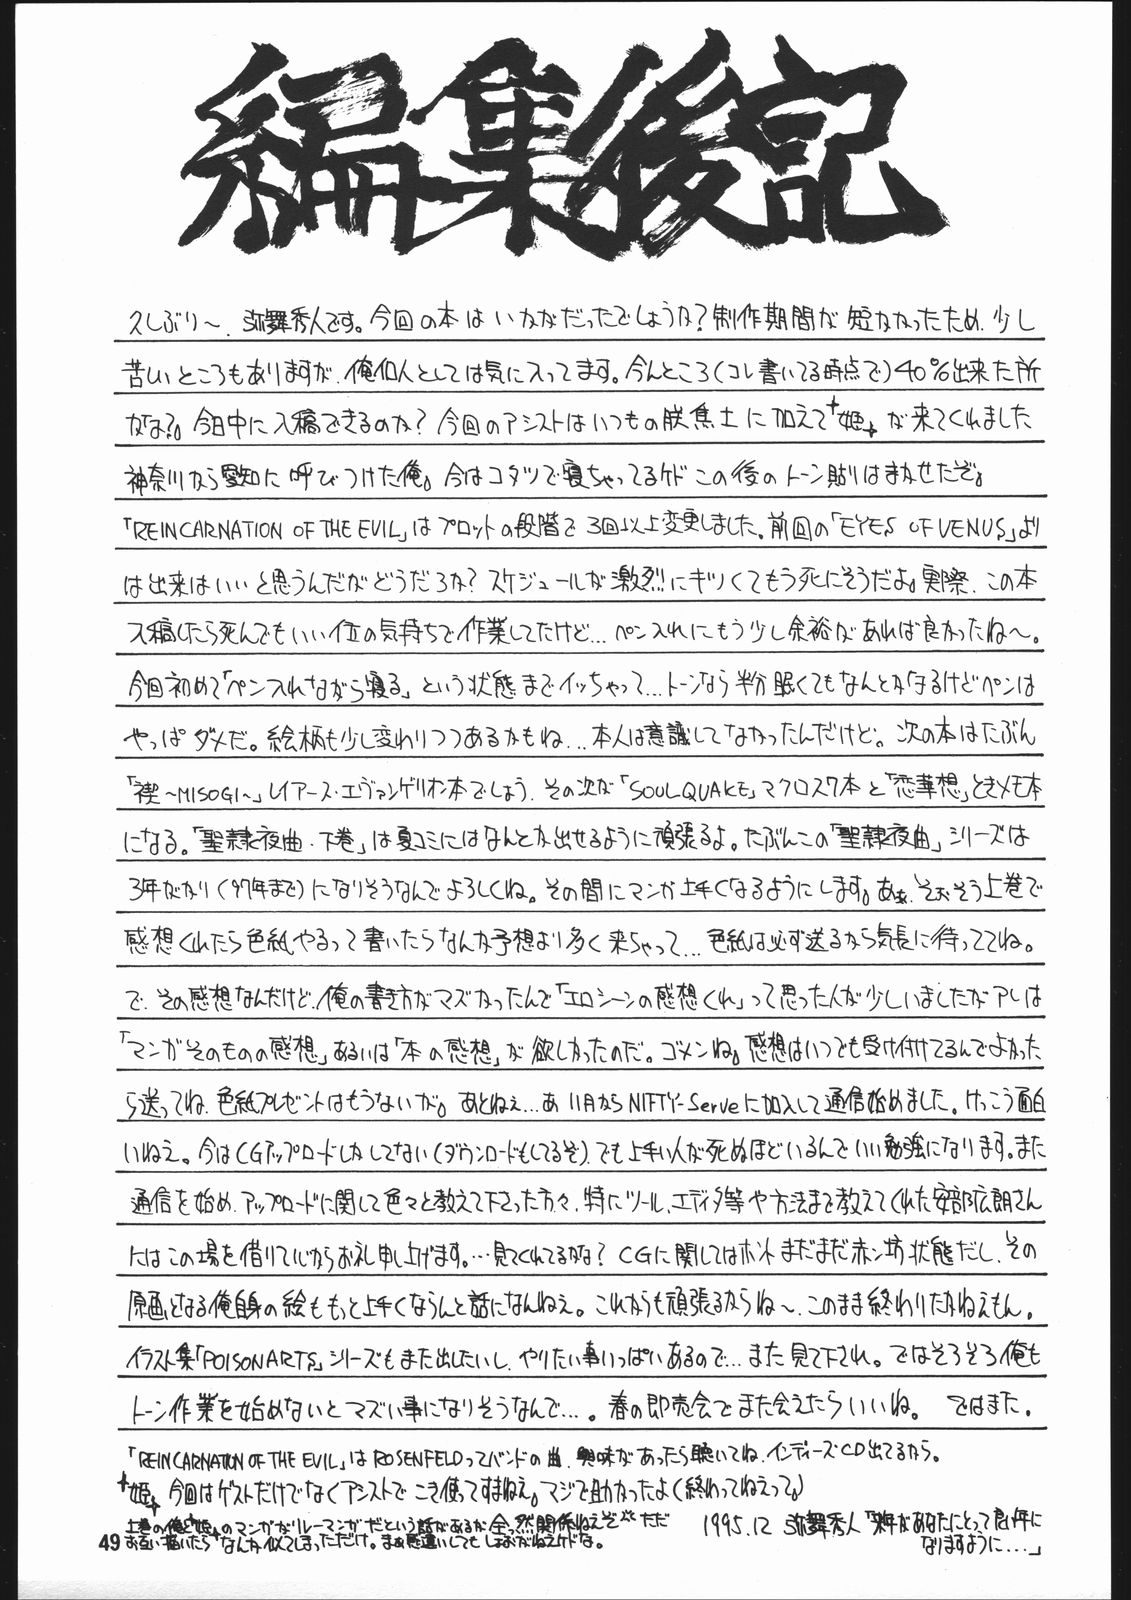 編集後記
久しぶり〜、弥舞秀人です。今回の本はいかがだったでしょうか?制作期間が短かかったため、少し
苦しいところもありますが、俺個人としては気に入ってます。今んところ(コレ書いてる時点で)40%出来た所
かな?。今日中に入稿できるのか?今回のアシストはいつもの朕焦土に加えて“姫”が来てくれました
神奈川から愛知に呼びつけた俺。今はコタツで寝ちゃってるケドこの後のトーン貼りはまかせたぞ。
「REINCARNATION OF THE EVIL」はプロットの段階で3回以上変更しました。前回の「EYES OF VENUS」より
は出来はいいと思うんだがどうだろな?スケジュールが激烈にキツくてもう死にそうだよ。実際、この本
入稿したら死んでもいい位の気持ちで作業してたけど…ペン入れにもう少し余裕があれば良かったね〜。
今回初めて「ペン入れながら寝る」という状態までイッちゃって…トーンなら半分眠くてもなんとかなるけどペンは
やっぱダメだ。絵柄も少し変わりつつあるかもね…本人は意識してなかったんだけど。次の本はたぶん
「禊〜MISOGI〜」レイアース・エヴァンゲリオン本でしょう、その次が「SOUL QUAKE」マクロス7本と「恋華想」ときメモ本
になる。「聖隷夜曲・下巻」は夏コミにはなんとか出せるように頑張るよ。たぶんこの「聖隷夜曲」シリーズは
3年がかり(97年まで)になりそうなんでよろしくね。その間にマンガ上手くなるようにします。あぁ、そぉそう上巻で
感想くれたら色紙やるって書いたらなんか予想より多く来ちゃって…色紙は必ず送るから気長に待っててね。
で、その感想なんだけど、俺の書き方がマズかったんで「エロシーンの感想くれ」って思った人が少しいましたがアレは
「マンガそのものの感想」あるいは「本の感想」が欲しかったのだ。ゴメンね。感想はいつでも受け付けてるんでよかった
ら送ってね、色紙プレゼントはもうないが。あとねぇ…あ11月からNIFTY-Serveに加入して通信始めました。けっこう面白
いねえ。今はCGアップロードしかしてない(ダウンロードもしてるぞ)、でも上手い人が死ぬほどいるんでいい勉強になります。また
通信を始め、アップロードに関して色々と教えて下さった方々、特にツール、エディタ等や方法まで教えてくれた安部広朗さん
にはこの場を借りて心からお礼申し上げます。…見てくれてるかな?CGに関してはホントまだまだ赤ン坊状態だし、その
原画となる俺自身の絵ももっと上手くならんと話になんねぇ。これからも頑張るからね〜、このまま終わりたかねえもん。
イラスト集「POISON ARTS」シリーズもまた出したいし、やりたい事いっぱいあるので…また見て下され。ではそろそろ俺も
トーン作業を始めないとマズい事になりそうなんで…。春の即売会でまた会えたらいいね。ではまた。
「REINCARNATION OF THE EVIL」はROSENFELDってバンドの曲、興味があったら聴いてね、インディーズCD出てるから。
“姫”今回はゲストだけでなくアシストでこき使ってすまねえ。マジで助かったよ(終わってねえって。)
上巻の俺と“姫”のマンガがリレーマンガだという話があるが全っ然関係ねえぞ ただ
お互い描いたらなんか似てしまっただけ。まぁ勘違いしてもしょおがねえけどな。
1995.12 弥舞秀人「来年があなたにとって良い年に
なりますように…」
49